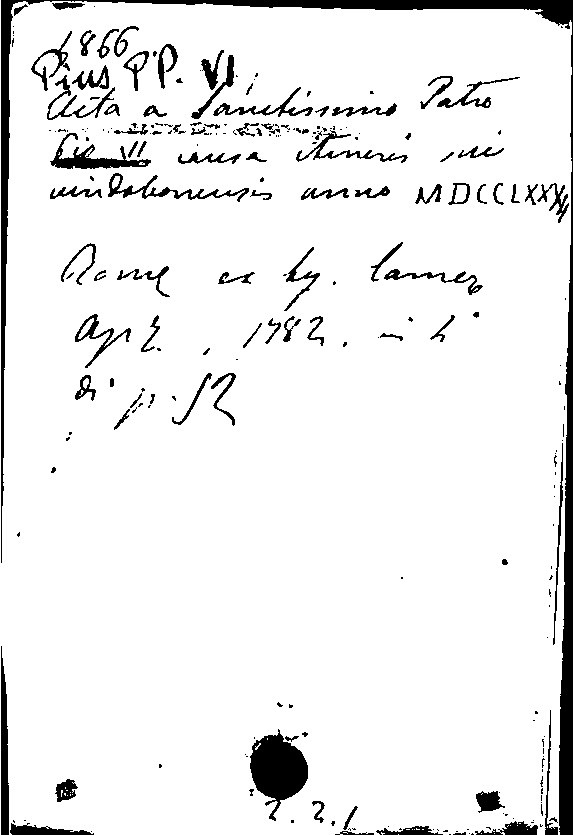 1866
Pius P.P. VI
Acta a Sanctissimo Patre
Pio VI causa itineris sui
vindobonensis anno MDCCLXXXII
Romæ ex typ. Camer.
Ap. , 1782. in 4°
di p. 52
2.2.1